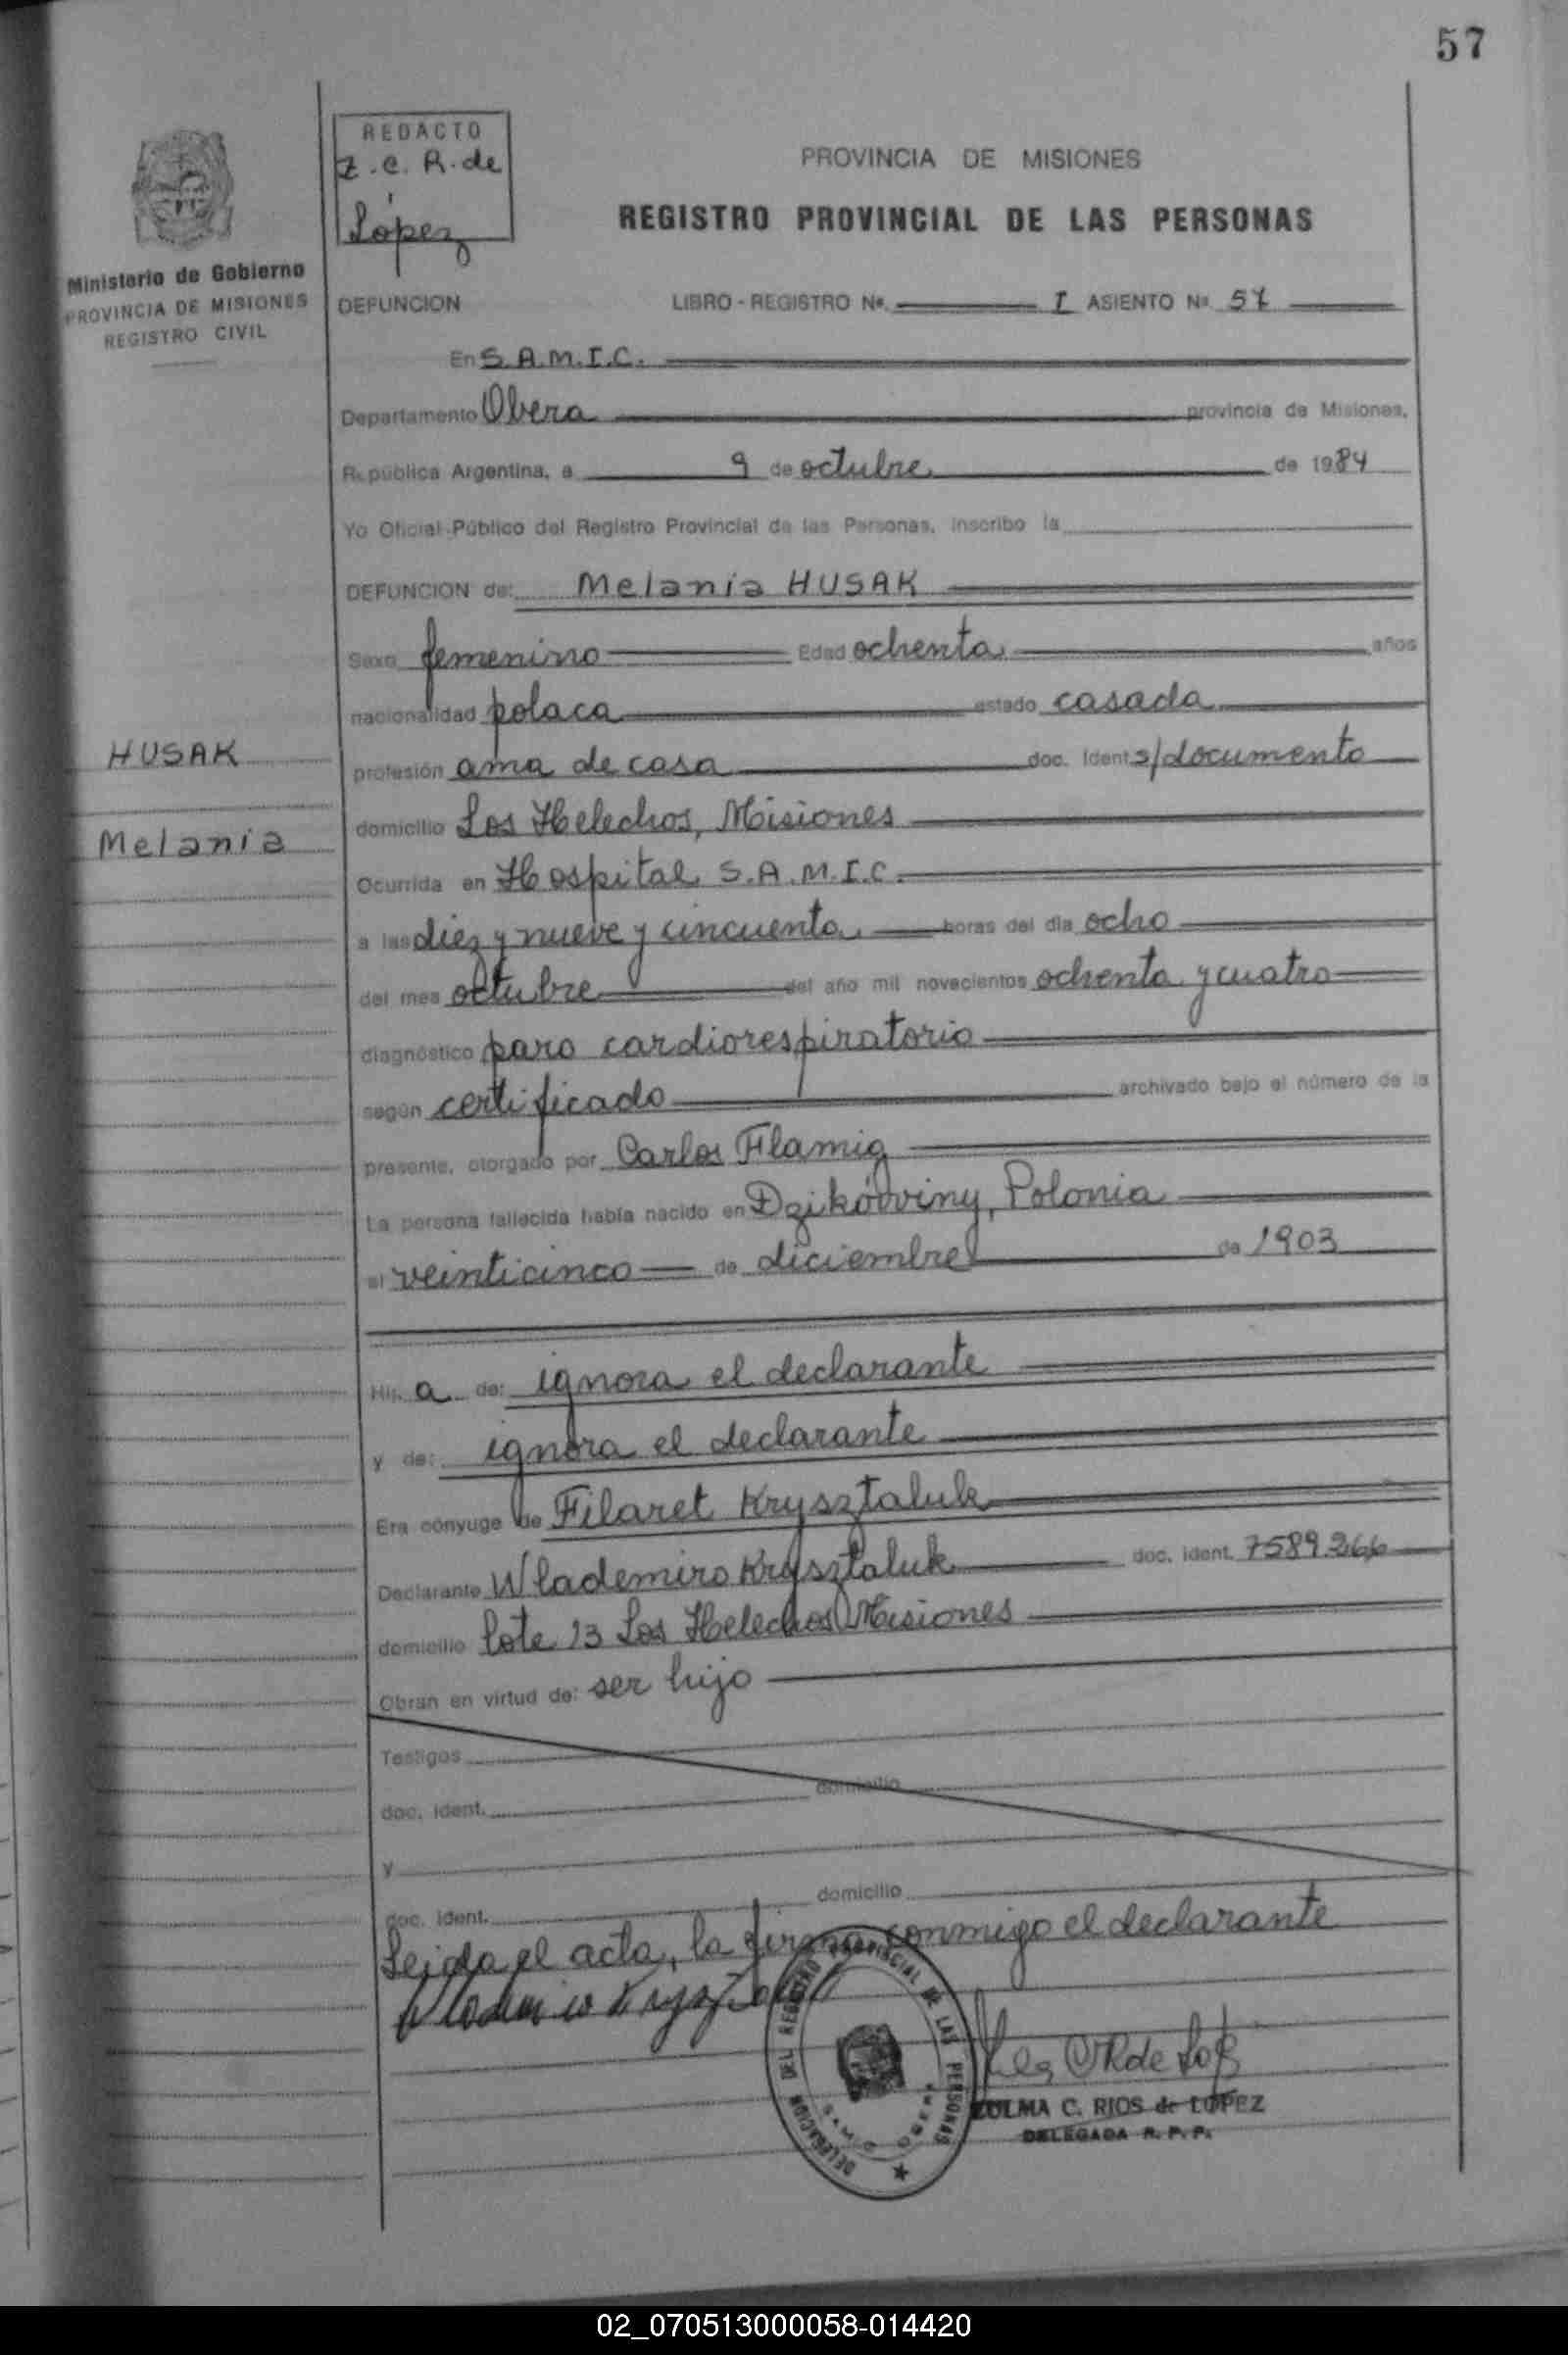 57
REDACTO
Z.C.R. de
López
PROVINCIA DE MISIONES
REGISTRO PROVINCIAL DE LAS PERSONAS
Ministerio de Gobierno
PROVINCIA DE MISIONES
REGISTRO CIVIL
DEFUNCION LIBRO - REGISTRO Nº. I ASIENTO Nº 57
En S.A.M.I.C.
Departamento Obera provincia de Misiones,
República Argentina, a 9 de octubre de 1984
Yo Oficial Público del Registro Provincial de las Personas, inscribo la
DEFUNCION de: Melania HUSAK
Sexo femenino Edad ochenta años
nacionalidad polaca estado casada
HUSAK
profesión ama de casa doc. Ident. s/documento
domicilio Los Helechos, Misiones
Melania
Ocurrida en Hospital S.A.M.I.C.
a las diez y nueve y cincuenta horas del día ocho
del mes octubre del año mil novecientos ochenta y cuatro
diagnóstico paro cardiorespiratorio
según certificado archivado bajo el número de la
presente, otorgado por Carlos Flamig
La persona fallecida había nacido en Dzikówiny, Polonia
el veinticinco de diciembre de 1903
Hij a de: ignora el declarante
y de: ignora el declarante
Era cónyuge de Filaret Krysztaluk
Declarante Wlademiro Krysztaluk doc. ident. 7589266
domicilio lote 13 Los Helechos Misiones
Obran en virtud de: ser hijo
Testigos
doc. ident. domicilio
y
doc. ident. domicilio
Leida el acta, la firma conmigo el declarante
DELEGACION DEL REGISTRO PROVINCIAL DE LAS PERSONAS
ZULMA C. RIOS de LOPEZ
DELEGADA R. P. P.
02_070513000058-014420